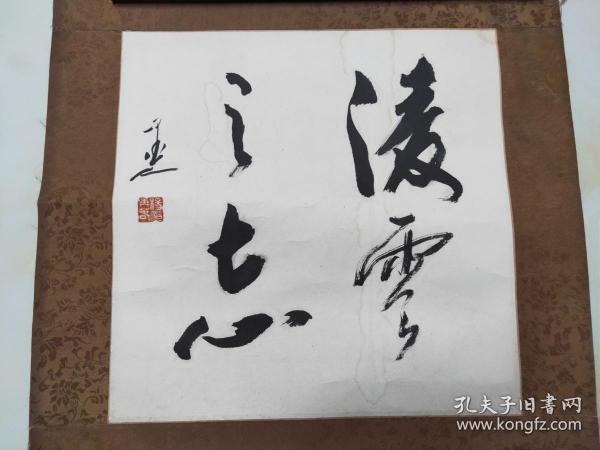 凌雲
之志
孔夫子旧書网
www.kongfz.com